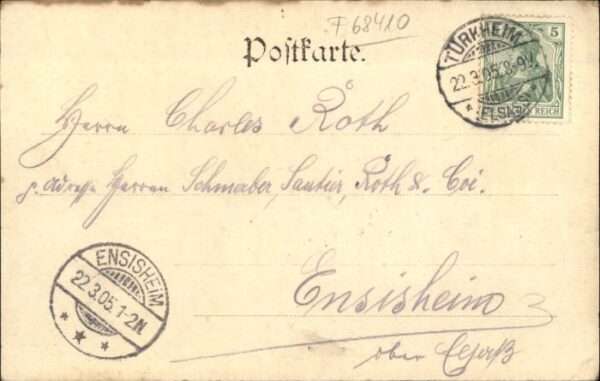 F 68410
Postkarte.
TÜRKHEIM
22.3.05.8-9V.
* (ELSASS)
5
REICH
Herrn Charles Roth
p. Adresse Herren Schwaber, Sautier, Roth & Coi.
ENSISHEIM
22.3.05.1-2N.
* * *
Ensisheim
ober Elsaß